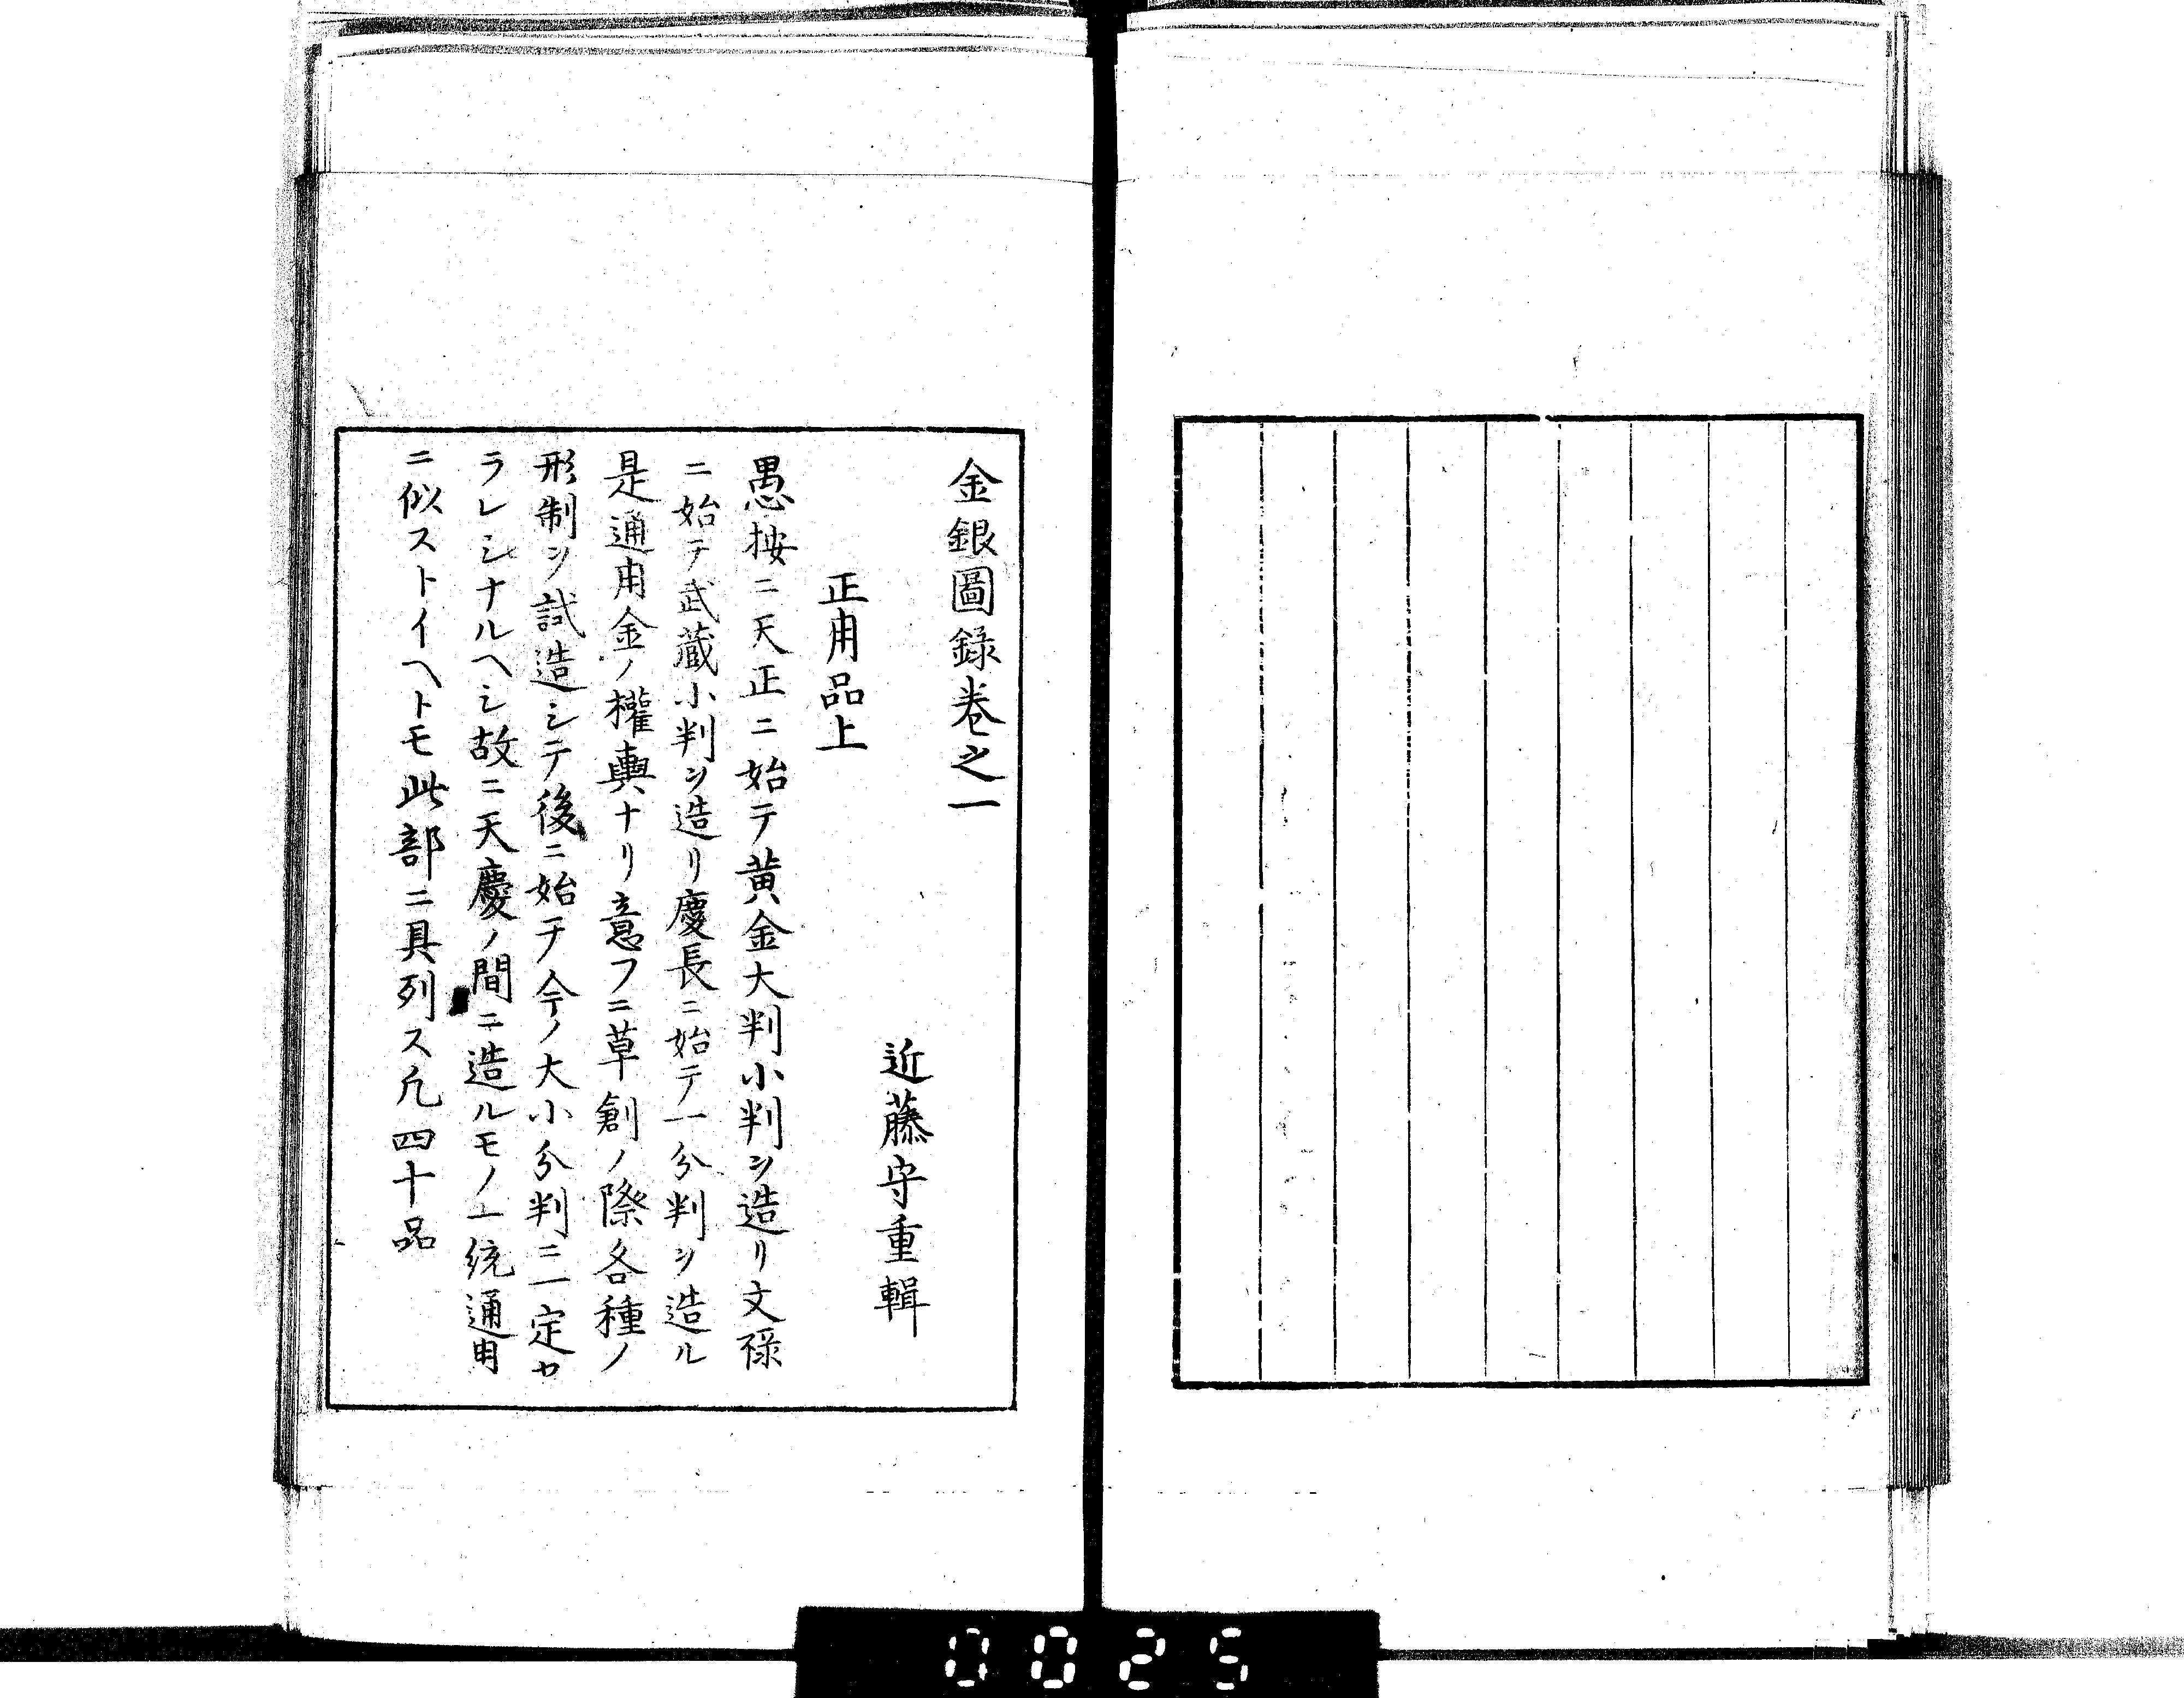 金銀圖錄卷之一
近藤守重輯
正用品上
愚按ニ天正ニ始テ黄金大判小判ヲ造リ文祿
ニ始テ武藏小判ヲ造リ慶長ニ始テ一分判ヲ造ル
是通用金ノ權輿ナリ意フニ草創ノ際各種ノ
形制ヲ試造シテ後ニ始テ今ノ大小分判ニ一定セ
ラレシナルヘシ故ニ天慶ノ間ニ造ルモノ一統通用
ニ似ストイヘトモ此部ニ具列ス凡四十品
0025